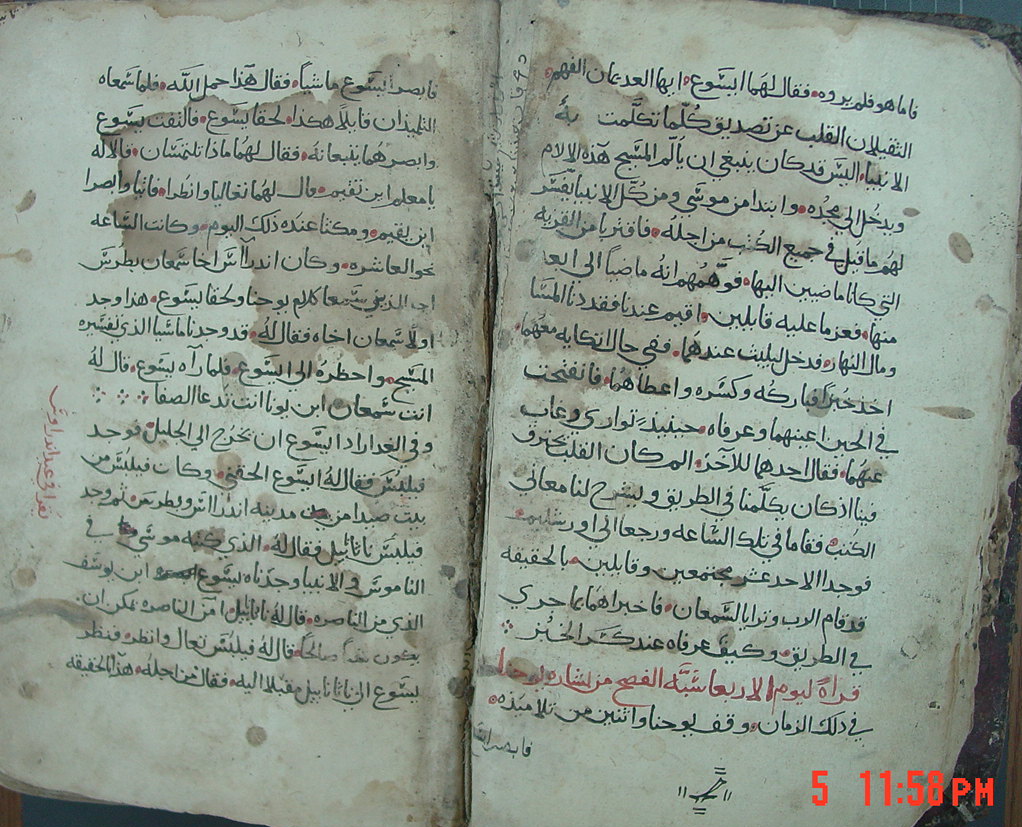 فاما هو فلم يروه فقال لهما ايسوع ايها العديمان الفهم
الثقيلان القلب عن تصديق كلما تكلمت به
الانبيا اليس قد كان ينبغي ان يالم المسيح هذه الالام
ويدخل الي مجده وابتدا من موسي ومن كل الانبيا يفسر
لهم ما قيل في جميع الكتب من اجله فاقتربا من القريه
التي كانا ماضيين اليها فوهمهم انه ماضيا الي ابعد
منها فعزما عليه قايلين اقيم عندنا فقد دنا المسا
ومال النهار فدخل ليلبث عندهما ففي حال اتكايه معهما
اخذ خبزا فباركه وكسره واعطاهما فانفتحت
في الحين اعينهما وعرفاه حينيذ توارى وغاب
عنهما فقال احدهما للآخر الم كان القلب يحترق
فينا اذ كان يكلمنا في الطريق ويشرح لنا معاني
الكتب فقاما في تلك الساعه ورجعا الي اورشليم
فوجدا الاحد عشر مجتمعين وقايلين بالحقيقه
قد قام الرب وترايا لسمعان فاخبراهما بما جري
في الطريق وكيف عرفاه عند كسر الخبز
قراة ليوم الاربعا سبة الفصح من بشارة يوحنا
في ذلك الزمان وقف يوحنا واثنين من تلاميذه
فابصر
فابصر ايسوع ماشيا فقال هذا حمل الله فلما سمعاه
التلميذان قايلا هكذا لحقا يسوع فالتفت يسوع
وابصرهما يتبعانه فقال لهما ماذا تلتمسان قالا له
يا معلم اين تقيم قال لهما تعاليا وانظرا فاتيا وابصرا
اين يقيم ومكثا عنده ذلك اليوم وكانت الساعه
نحو العاشره وكان اندراس اخا سمعان بطرس
احد الذين سمعا كلام يوحنا ولحقا يسوع هذا وجد
اولا سمعان اخاه فقال له قد وجدنا ماسيا الذي تفسيره
المسيح واحظره الي ايسوع فلما رآه يسوع قال له
انت سمعان ابن يونا انت تدعا الصفا
وفي الغد اراد ايسوع ان يخرج الي الجليل فوجد
فيلبس فقال له ايسوع الحقني وكان فيلبس من
بيت صيدا من مدينه اندرااس وبطرس ثم وجد
فيلبس ناثانييل فقال له الذي كتبه موسي في
الناموس والانبيا وجدناه يسوع ابن يوسف
الذي من الناصره قال له ناثانييل امن الناصره يمكن ان
يكون شيا صالحا قال له فيلبس تعال وانظر فنظر
يسوع الي ناثانييل مقبلا اليه فقال من اجله هذا بالحقيقه
5 11:58 PM